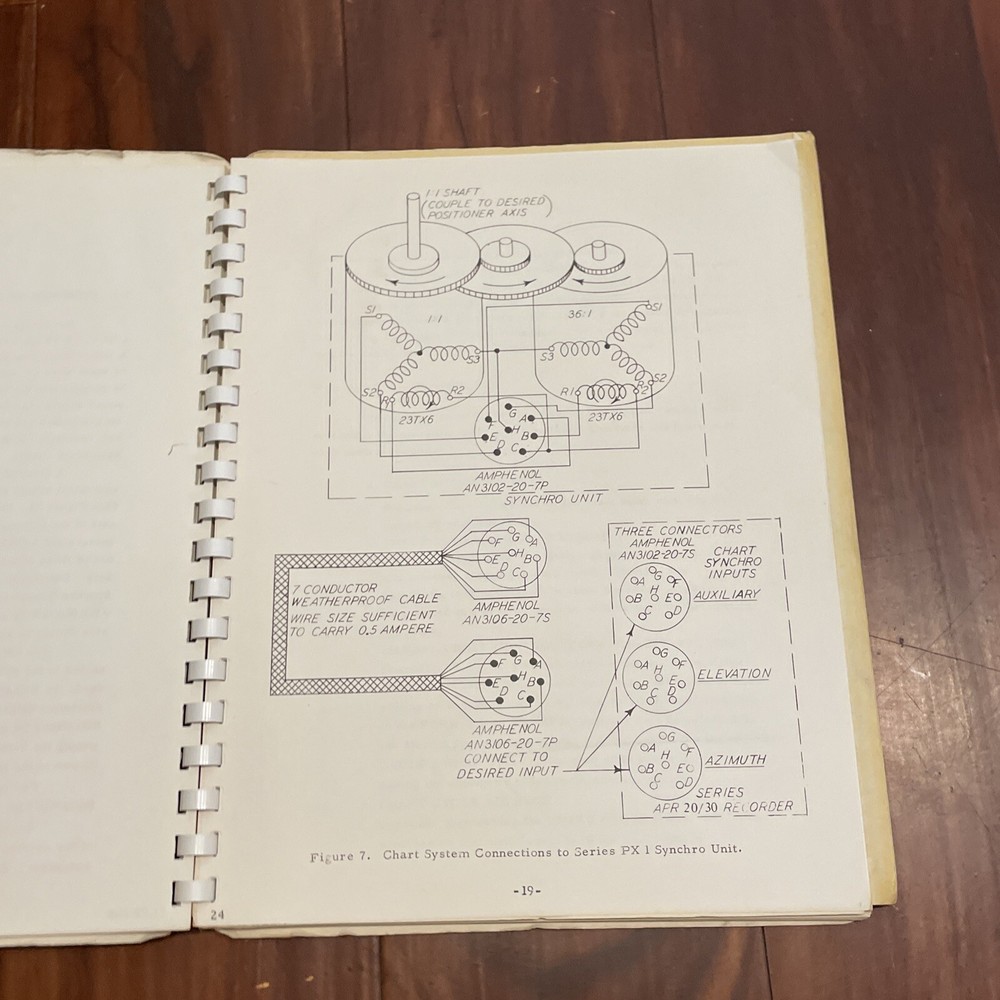 1:1 SHAFT
(COUPLE TO DESIRED
POSITIONER AXIS)
S1
1:1
36:1
S1
S3
S3
S2
R1
R2
R1
R2
S2
23TX6
23TX6
G
F
A
H
E
B
D
C
AMPHENOL
AN3102-20-7P
SYNCHRO UNIT
7 CONDUCTOR
WEATHERPROOF CABLE
WIRE SIZE SUFFICIENT
TO CARRY 0.5 AMPERE
G
F
A
H
E
B
D
C
AMPHENOL
AN3106-20-7S
G
F
A
H
E
B
D
C
AMPHENOL
AN3106-20-7P
CONNECT TO
DESIRED INPUT
THREE CONNECTORS
AMPHENOL
AN3102-20-7S
CHART
SYNCHRO
INPUTS
G
A
F
H
B
E
C
D
AUXILIARY
G
A
F
H
B
E
C
D
ELEVATION
G
A
F
H
B
E
C
D
AZIMUTH
SERIES
APR 20/30 RECORDER
Figure 7. Chart System Connections to Series PX 1 Synchro Unit.
-19-
24